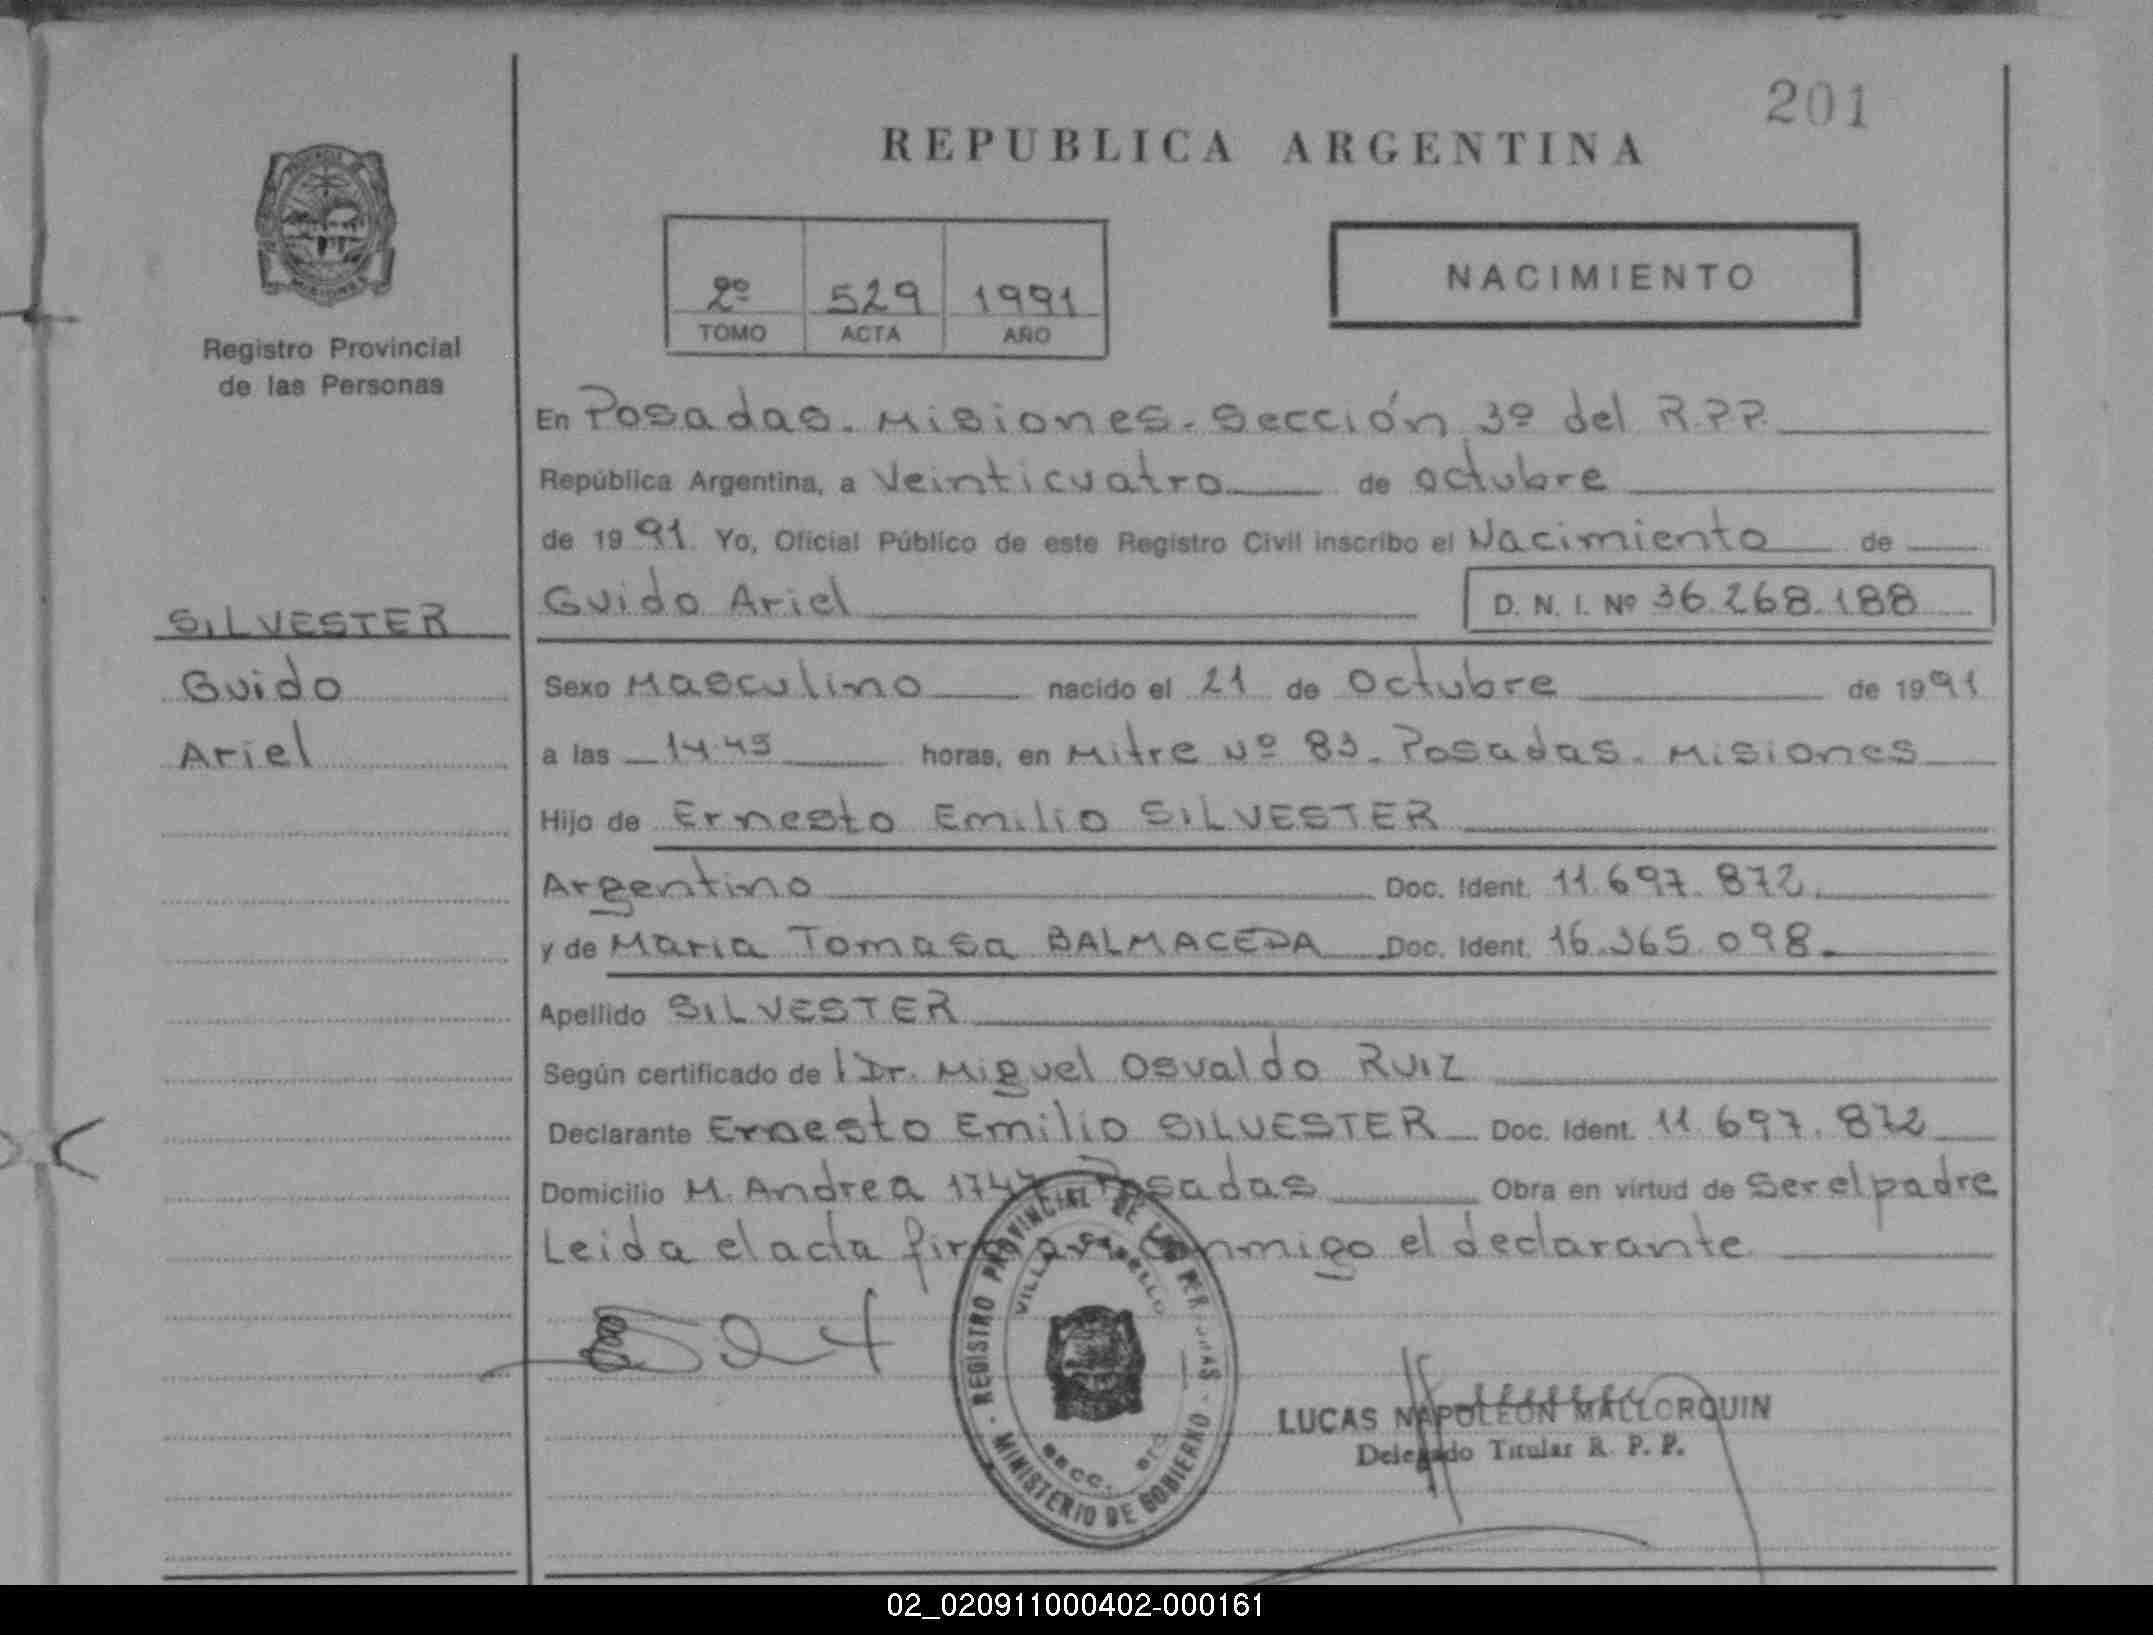 201
REPUBLICA ARGENTINA
2º 529 1991
TOMO ACTA AÑO
NACIMIENTO
Registro Provincial
de las Personas
En Posadas. Misiones. Sección 3º del R.P.P.
República Argentina, a Veinticuatro de octubre
de 1991 Yo, Oficial Público de este Registro Civil inscribo el Nacimiento de
Guido Ariel D. N. I. Nº 36.268.188
SILVESTER
Guido
Ariel
Sexo Masculino nacido el 21 de Octubre de 1991
a las 14.45 horas, en Mitre Nº 83. Posadas. Misiones
Hijo de Ernesto Emilio SILVESTER
Argentino Doc. Ident. 11.697.872
y de Maria Tomasa BALMACEDA Doc. Ident. 16.365.098
Apellido SILVESTER
Según certificado de l Dr. Miguel Osvaldo RUIZ
Declarante Ernesto Emilio SILVESTER Doc. Ident. 11.697.872
Domicilio M. Andrea Posadas Obra en virtud de Ser el padre
Leida el acta conmigo el declarante
REGISTRO PROVINCIAL DE LAS PERSONAS
VILLA
SECC. 3ra
MINISTERIO DE GOBIERNO
LUCAS NAPOLEON MALLORQUIN
Delegado Titular R. P. P.
02_020911000402-000161